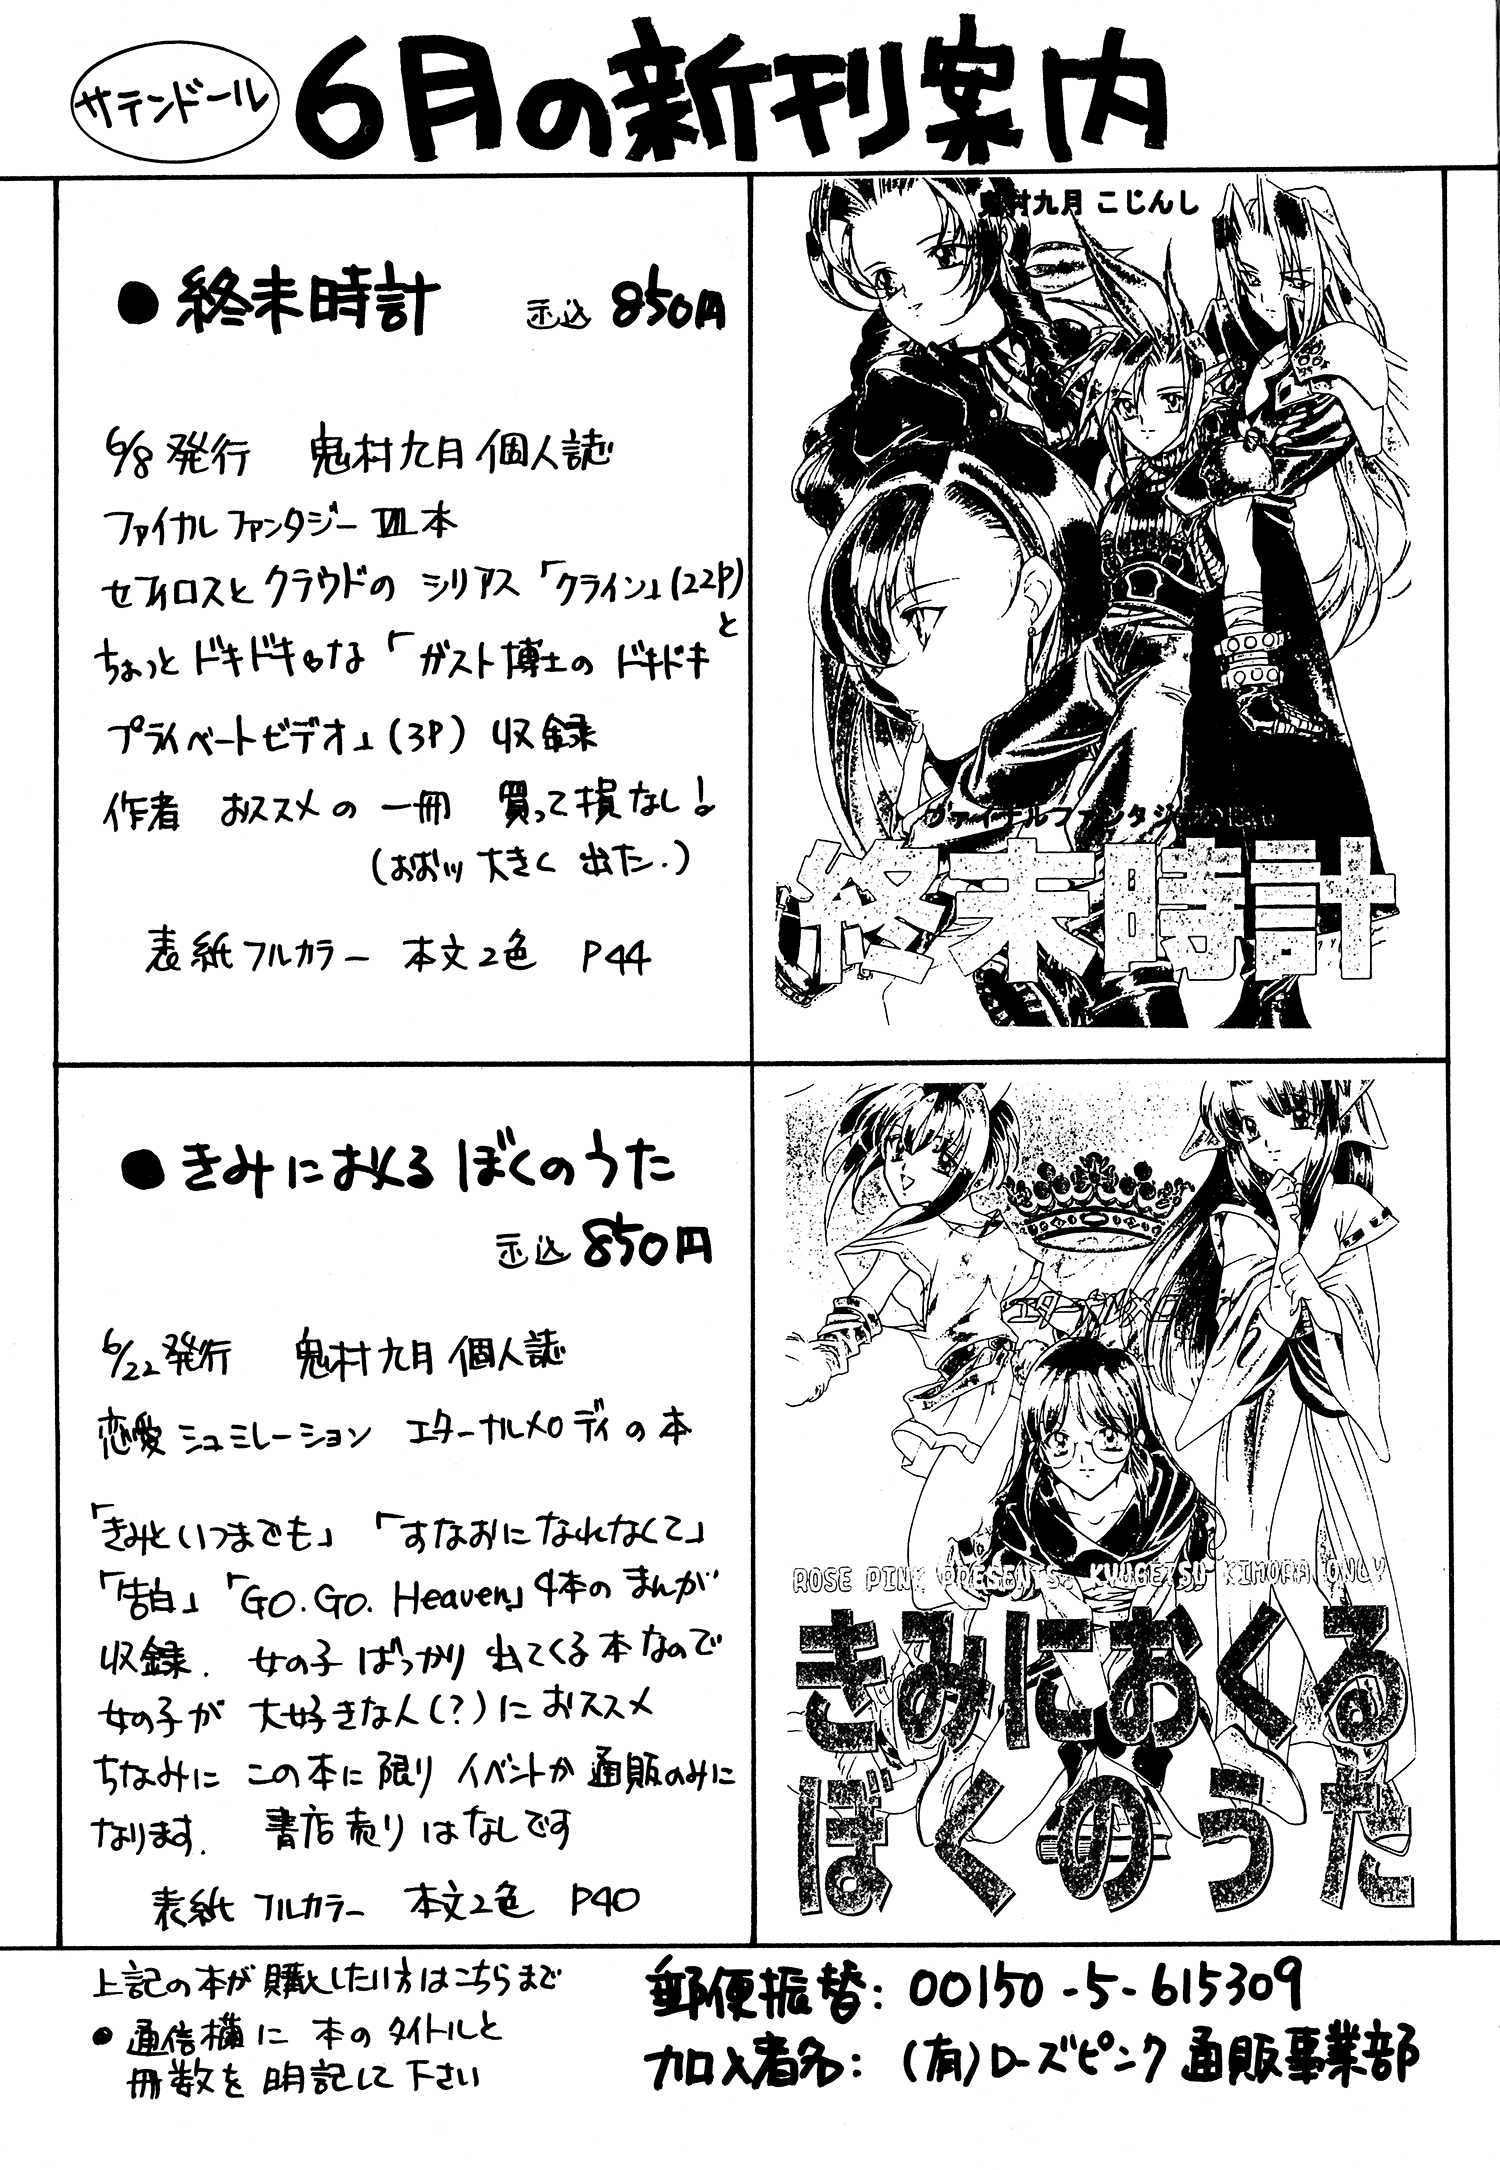 サテンドール
6月の新刊案内
●終末時計 ネ込 850円
6/8 発行 鬼村九月 個人誌
ファイナルファンタジー Ⅶ本
セフィロスとクラウドの シリアス「クライン」(22P)と
ちょっとドキドキ♡な「ガスト博士の ドキドキ
プライベートビデオ」(3P) 収録
作者 おススメの 一冊 買って損なし!
(おおッ 大きく 出た.)
表紙フルカラー 本文2色 P44
村九月 こじんし
終末時計
●きみにおくる ぼくのうた
ネ込 850円
6/22 発行 鬼村九月 個人誌
恋愛シュミレーション エターナルメロディの本
「きみといつまでも」「すなおになれなくて」
「告白」「GO.GO. Heaven」4本のまんが
収録. 女の子ばっかり 出てくる本なので
女の子が 大好きな人(?)におススメ
ちなみに この本に限り イベントか通販のみに
なります. 書店売りはなしです
表紙 フルカラー 本文2色 P40
エターナルメロ
ROSE PINK PRESENTS. KYUGETSU KIMORA ONLY
きみにおくる
ぼくのうた
上記の本が購入したい方はこちらまで
●通信欄に 本のタイトルと
冊数を 明記して下さい
郵便振替: 00150-5-615309
加入者名: (有)ローズピンク 通販事業部